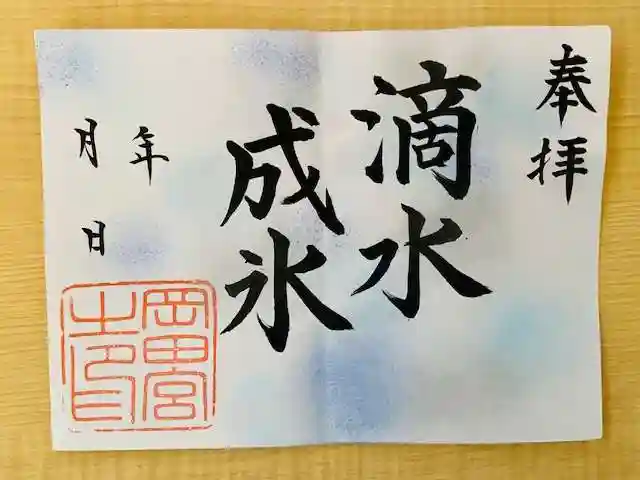 奉拝
滴水
成氷
年
月日
岡田宮
之印